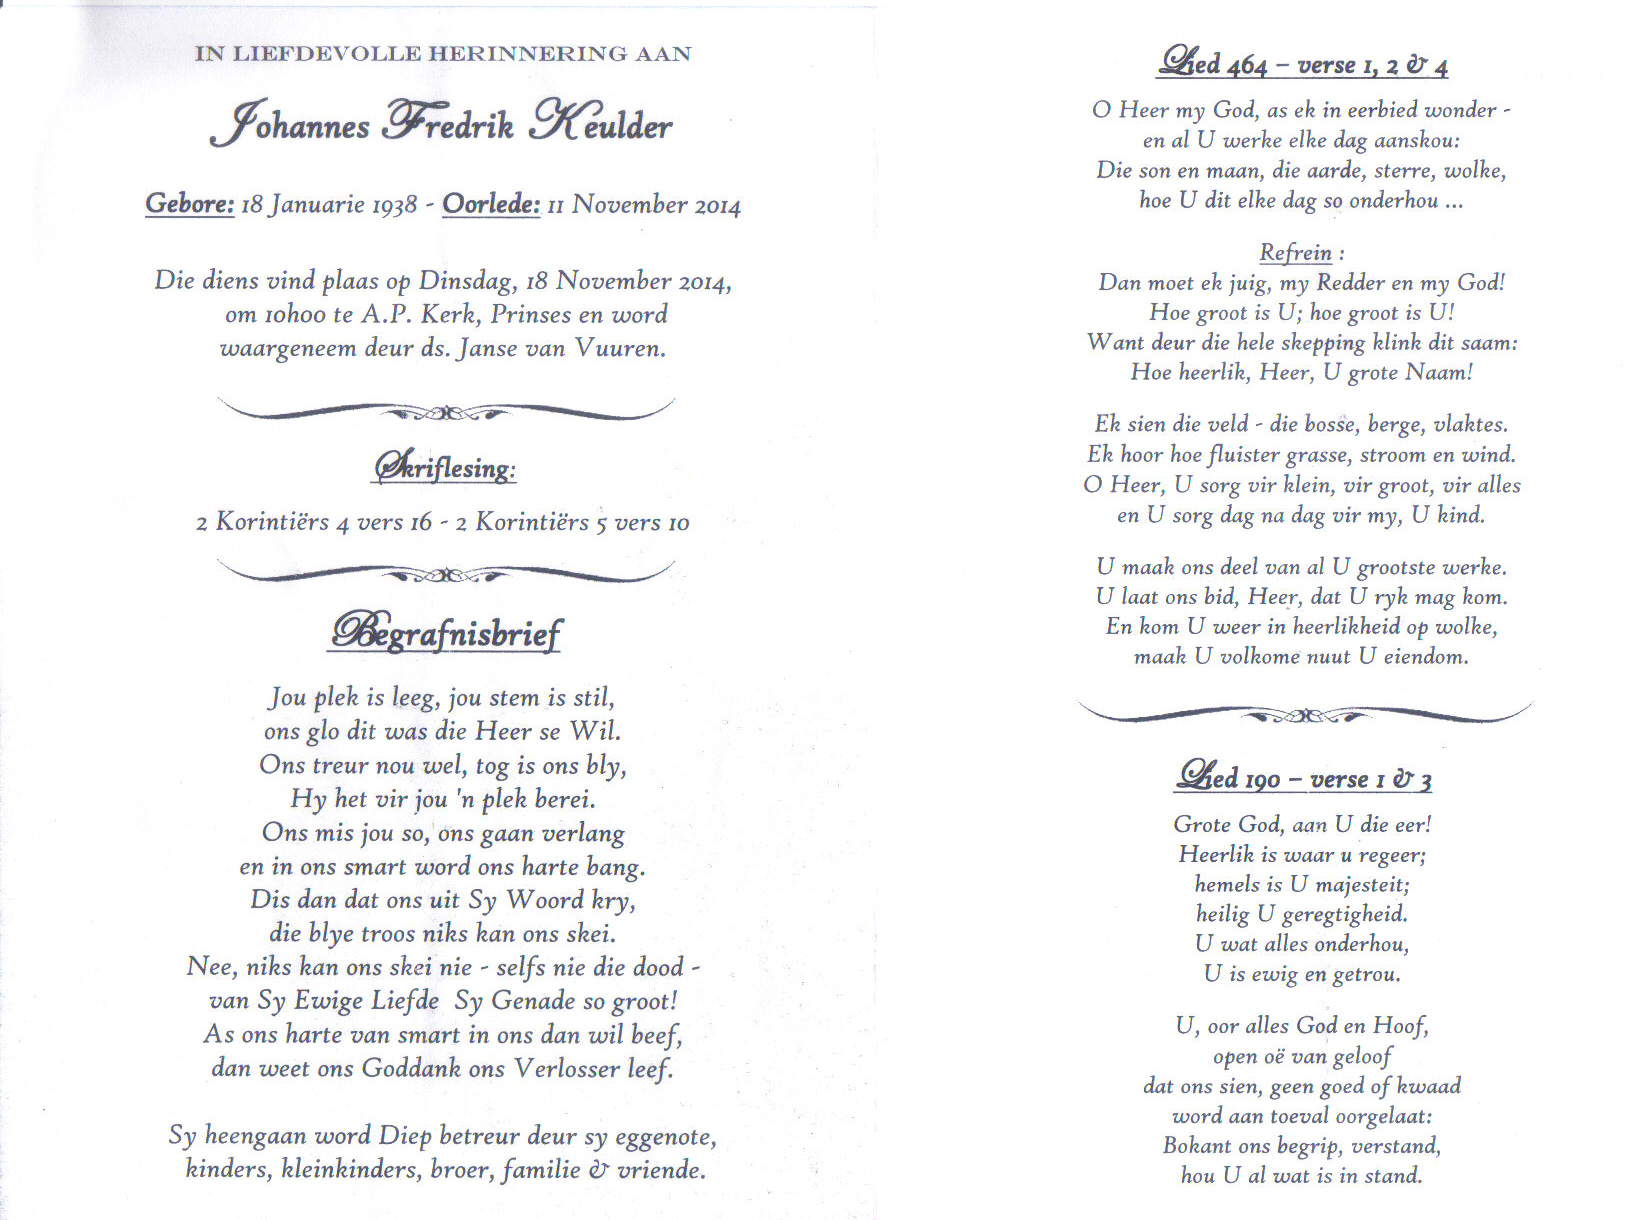 IN LIEFDEVOLLE HERINNERING AAN
Johannes Fredrik Keulder
Gebore: 18 Januarie 1938 - Oorlede: 11 November 2014
Die diens vind plaas op Dinsdag, 18 November 2014,
om 10h00 te A.P. Kerk, Prinses en word
waargeneem deur ds. Janse van Vuuren.
Skriflesing:
2 Korintiërs 4 vers 16 - 2 Korintiërs 5 vers 10
Begrafnisbrief
Jou plek is leeg, jou stem is stil,
ons glo dit was die Heer se Wil.
Ons treur nou wel, tog is ons bly,
Hy het vir jou 'n plek berei.
Ons mis jou so, ons gaan verlang
en in ons smart word ons harte bang.
Dis dan dat ons uit Sy Woord kry,
die blye troos niks kan ons skei.
Nee, niks kan ons skei nie - selfs nie die dood -
van Sy Ewige Liefde  Sy Genade so groot!
As ons harte van smart in ons dan wil beef,
dan weet ons Goddank ons Verlosser leef.
Sy heengaan word Diep betreur deur sy eggenote,
kinders, kleinkinders, broer, familie & vriende.
Lied 464 – verse 1, 2 & 4
O Heer my God, as ek in eerbied wonder -
en al U werke elke dag aanskou:
Die son en maan, die aarde, sterre, wolke,
hoe U dit elke dag so onderhou ...
Refrein :
Dan moet ek juig, my Redder en my God!
Hoe groot is U; hoe groot is U!
Want deur die hele skepping klink dit saam:
Hoe heerlik, Heer, U grote Naam!
Ek sien die veld - die bosse, berge, vlaktes.
Ek hoor hoe fluister grasse, stroom en wind.
O Heer, U sorg vir klein, vir groot, vir alles
en U sorg dag na dag vir my, U kind.
U maak ons deel van al U grootste werke.
U laat ons bid, Heer, dat U ryk mag kom.
En kom U weer in heerlikheid op wolke,
maak U volkome nuut U eiendom.
Lied 190 – verse 1 & 3
Grote God, aan U die eer!
Heerlik is waar u regeer;
hemels is U majesteit;
heilig U geregtigheid.
U wat alles onderhou,
U is ewig en getrou.
U, oor alles God en Hoof,
open oë van geloof
dat ons sien, geen goed of kwaad
word aan toeval oorgelaat:
Bokant ons begrip, verstand,
hou U al wat is in stand.